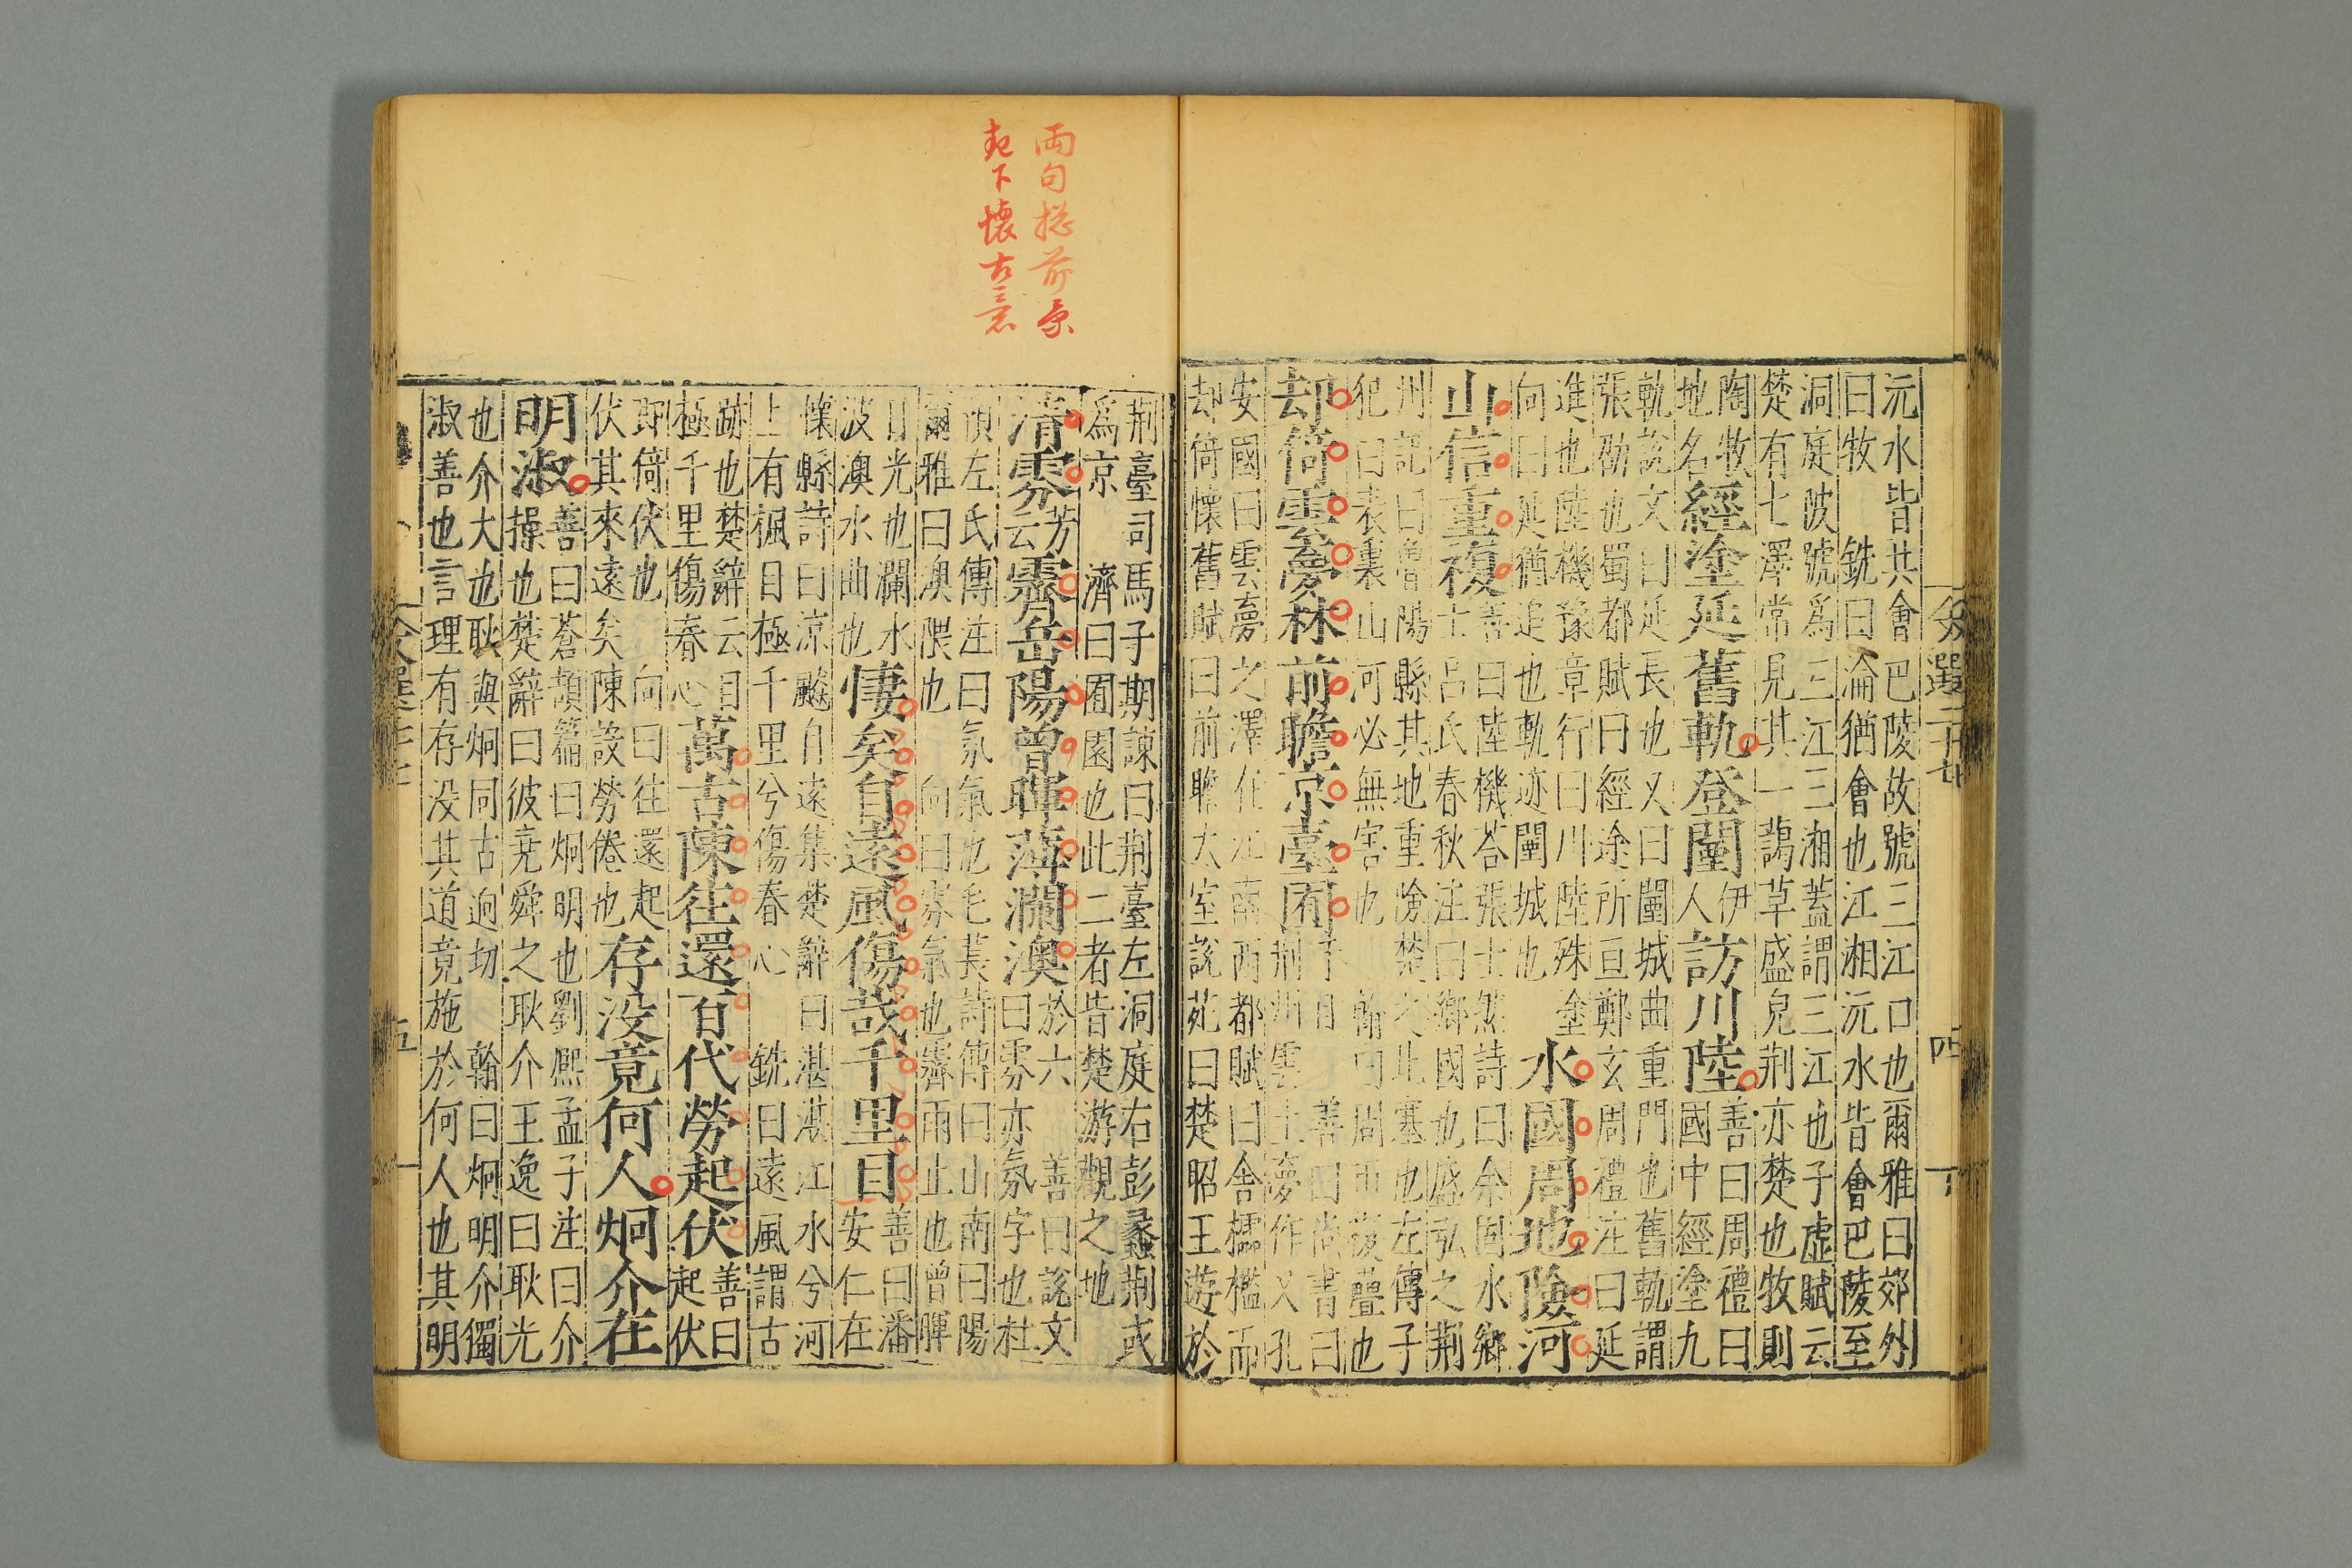 沅水皆共會巴陵故號三江口也爾雅曰郊外
曰牧　銑曰淪猶會也江湘沅水皆會巴陵至
洞庭陂號爲三江三湘蓋謂三江也子虛賦云
楚有七澤常見其一藹草盛皃荆亦楚也牧則
陶牧
地名
經塗延舊軌登闉
伊
人
訪川陸
善曰周禮曰
國中經塗九
軌說文曰延長也又曰闉城曲重門也舊軌謂
張劭也蜀都賦曰經途所亘鄭玄周禮注曰延
進也陸機豫章行曰川陸殊塗
向曰延猶追也軌迹闉城也
水國周地險河
山信重複
善曰陸機荅張士然詩曰余固水鄉
士吕氏春秋注曰鄉國也盛弘之荆
州記曰魯陽縣其地重險楚之北塞也左傳子
犯曰表裏山河必無害也　翰曰周帀複疊也
却倚雲夢林前瞻京臺囿
善曰尚書曰
荆州雲土夢作乂孔
安國曰雲夢之澤在江南西都賦曰舍櫺檻而
却倚懷舊賦曰前瞻太室說苑曰楚昭王遊於
文選二十七
四
荆臺司馬子期諫曰荆臺左洞庭右彭蠡荆或
爲京　濟曰囿園也此二者皆楚游觀之地
清雰
芳
云
霽岳陽曾暉薄瀾澳
於六　善曰說文
曰雰亦氛字也杜
預左氏傳注曰氛氣也毛萇詩傳曰山南曰陽
爾雅曰澳隈也　向曰雰氣也霽雨止也曾暉
日光也瀾水
波澳水曲也
悽矣自遠風傷哉千里目
善曰潘
安仁在
懷縣詩曰涼飇自遠集楚辭曰湛湛江水兮河
上有楓目極千里兮傷春心　銑曰遠風謂古
跡也楚辭云目
極千里傷春心
萬古陳往還百代勞起伏
善曰
起伏
即倚伏也　向曰往還起
伏其來遠矣陳設勞倦也
存没竟何人炯介在
明淑
善曰蒼頡篇曰炯明也劉熙孟子注曰介
操也楚辭曰彼堯舜之耿介王逸曰耿光
也介大也耿與炯同古迥切　翰曰炯明介獨
淑善也言理有存没其道竟施於何人也其明
五
兩句揔前景
起下懷古意